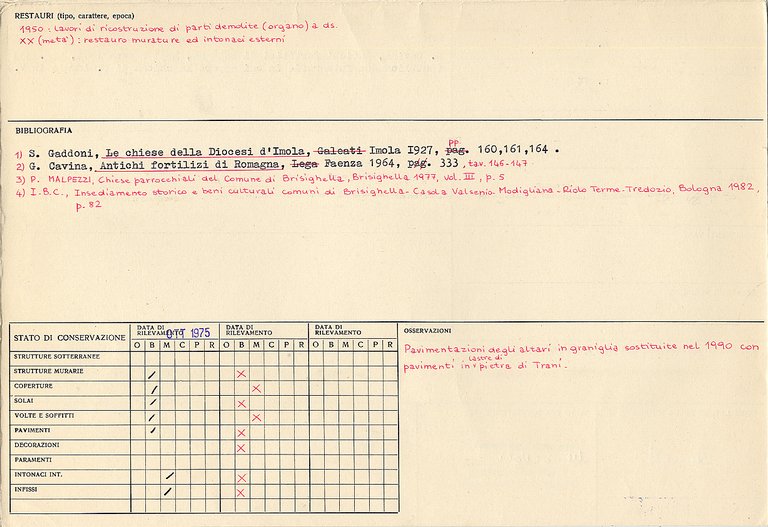 RESTAURI (tipo, carattere, epoca)
1950: lavori di ricostruzione di parti demolite (organo) a ds.
XX (metà): restauro murature ed intonaci esterni
BIBLIOGRAFIA
1) S. Gaddoni, Le chiese della Diocesi d'Imola, Galeati Imola I927, pag. PP 160,161,164 .
2) G. Cavina, Antichi fortilizi di Romagna, Lega Faenza 1964, pag. 333, tav. 146-147
3) P. MALPEZZI, Chiese parrocchiali del Comune di Brisighella, Brisighella 1977, vol. III, p. 5
4) I.B.C., Insediamento storico e beni culturali comuni di Brisighella-Casola Valsenio-Modigliana-Riolo Terme-Tredozio, Bologna 1982,
p. 82
STATO DI CONSERVAZIONE
DATA DI RILEVAMENTO OTT 1975
DATA DI RILEVAMENTO
DATA DI RILEVAMENTO
O B M C P R O B M C P R O B M C P R
STRUTTURE SOTTERRANEE
STRUTTURE MURARIE / X
COPERTURE / X
SOLAI / X
VOLTE E SOFFITTI / X
PAVIMENTI / X
DECORAZIONI X
PARAMENTI
INTONACI INT. / X
INFISSI / X
OSSERVAZIONI
Pavimentazioni degli altari in graniglia sostituite nel 1990 con
pavimenti in lastre di pietra di Trani.